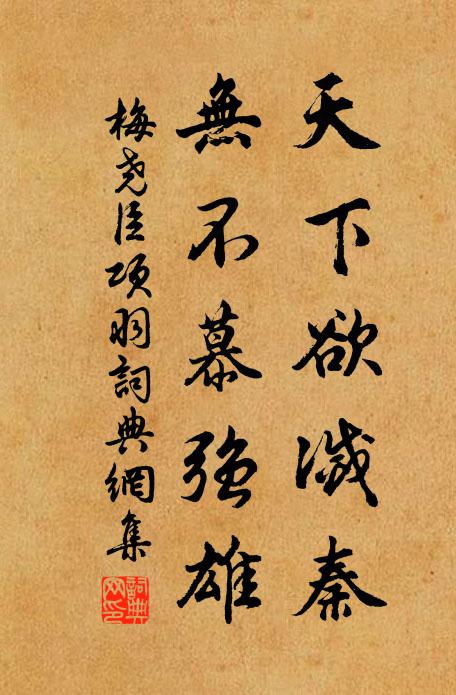 天下欲滅秦
無不慕强雄
梅堯臣項羽詞典網集
詞典網印